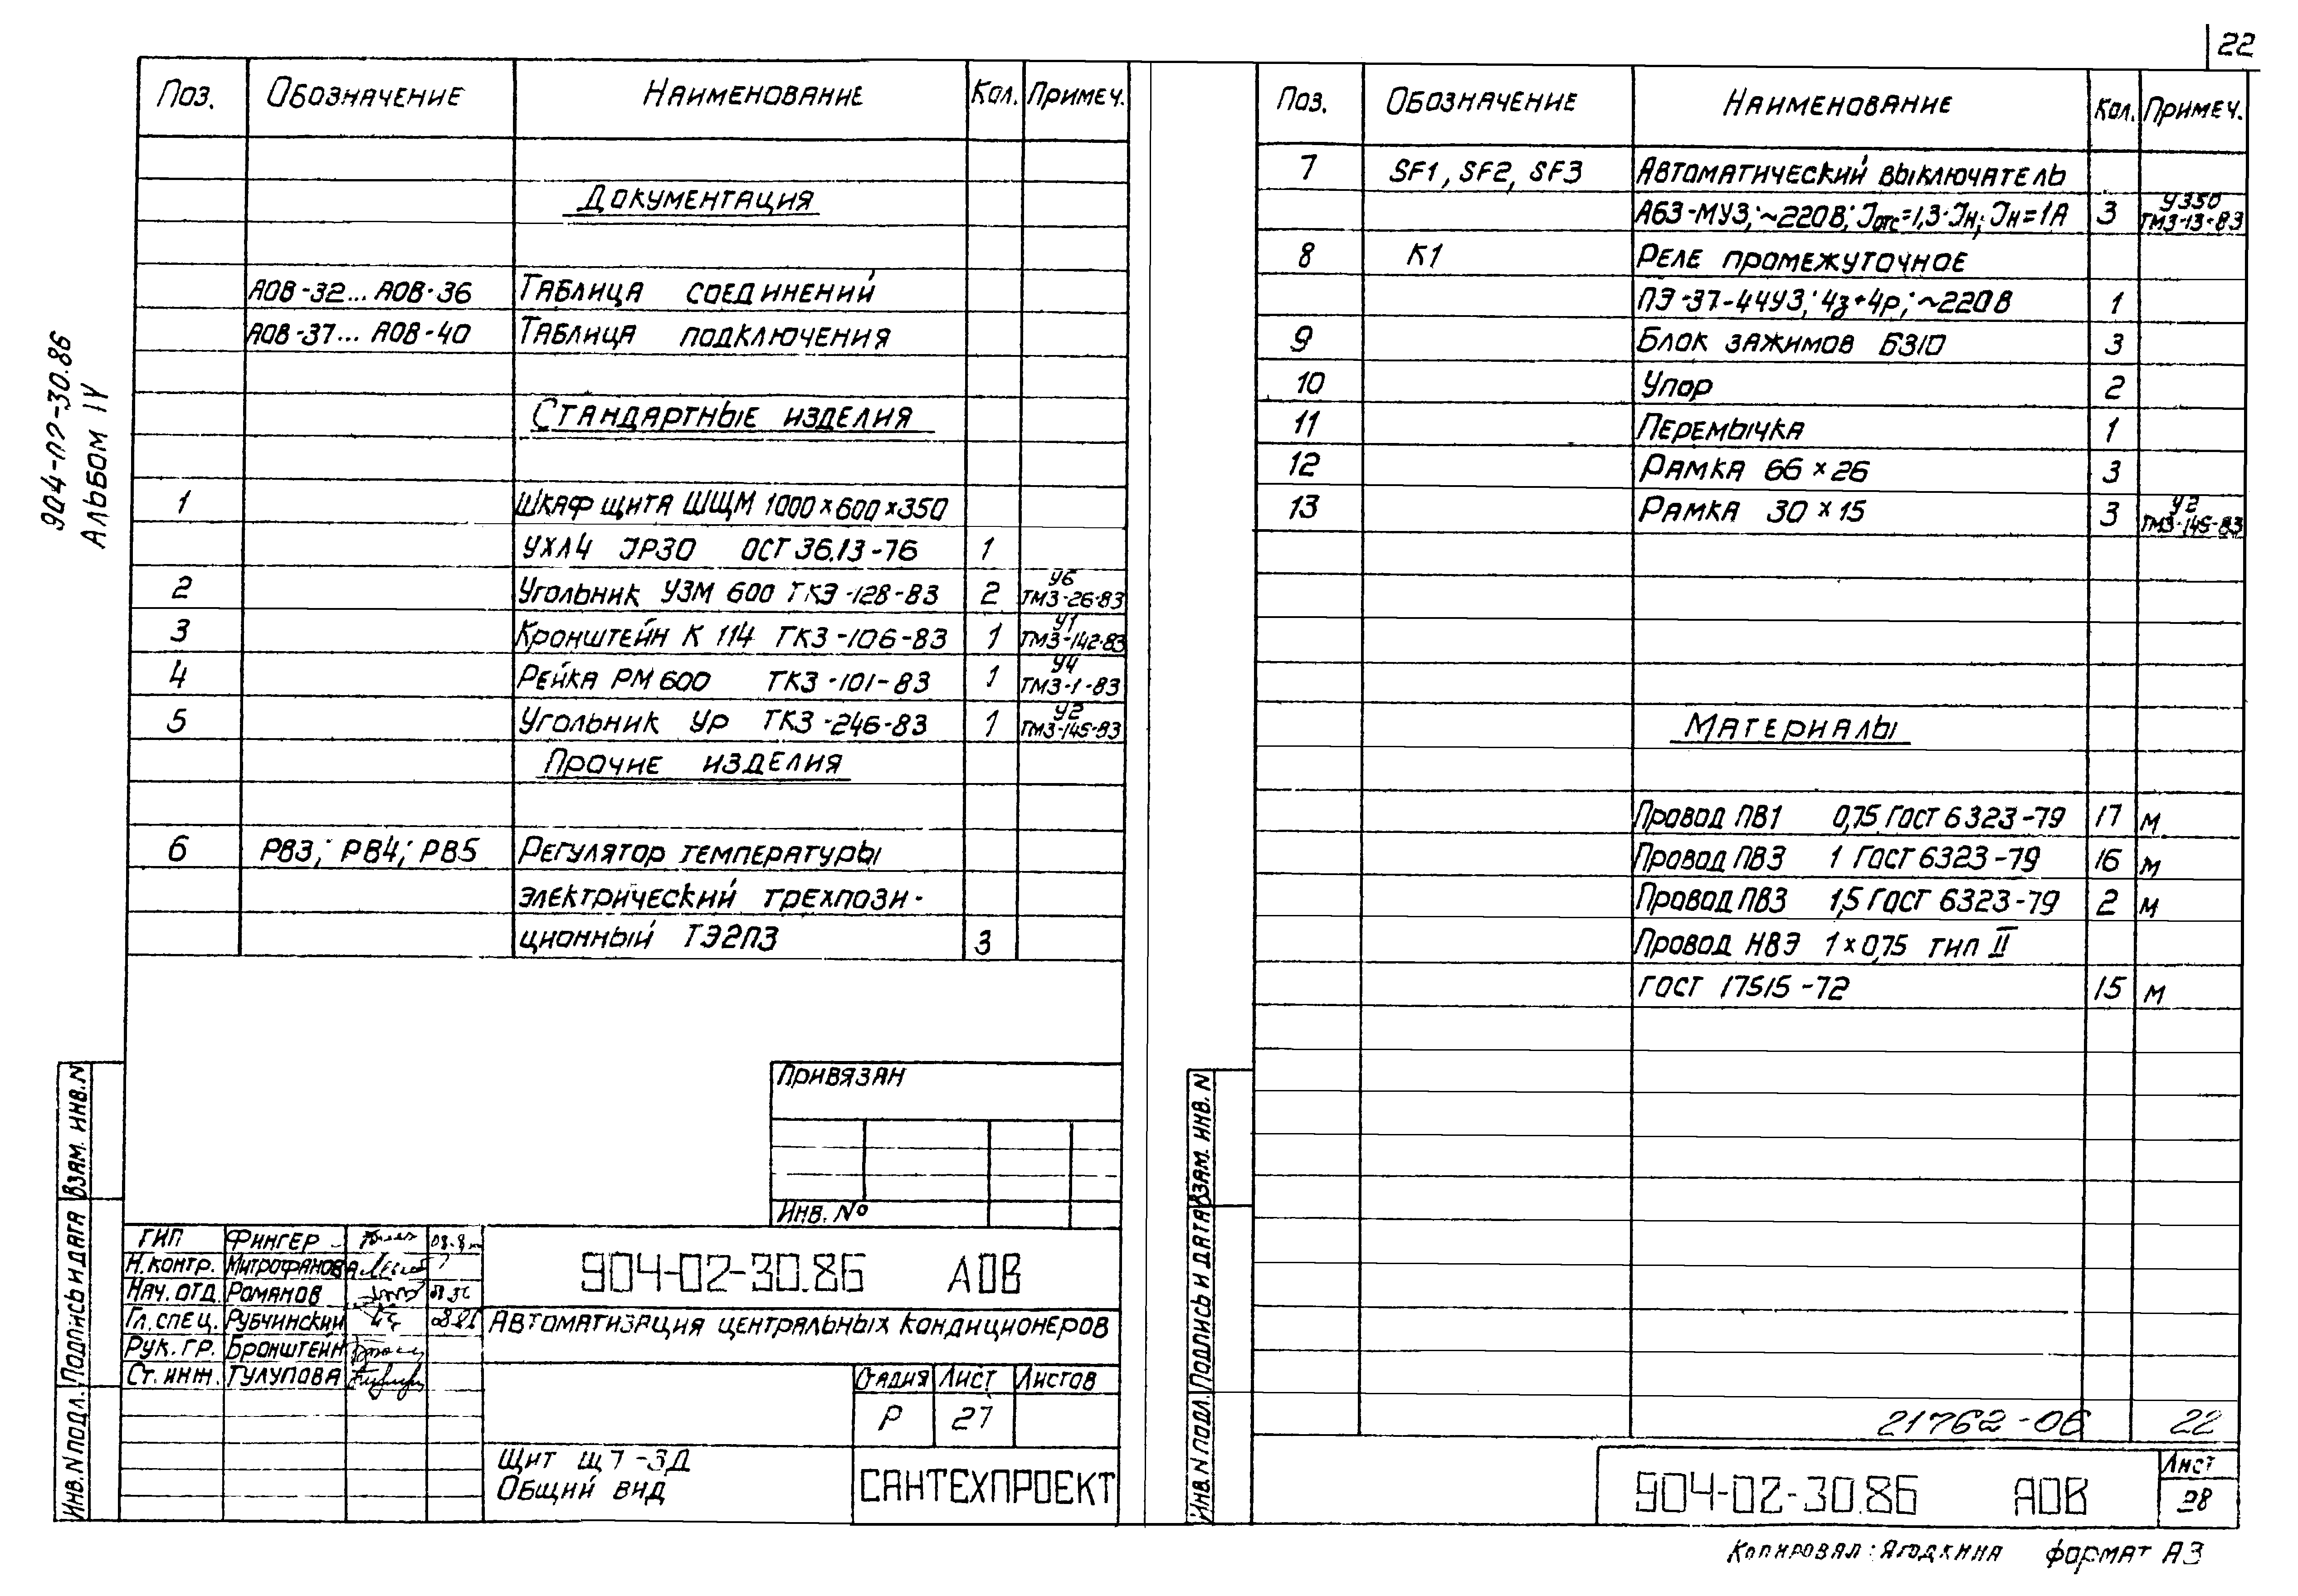 22
904-02-30.86
Альбом IV
Поз. Обозначение Наименование Кол. Примеч.
Документация
АОВ-32... АОВ-36 Таблица соединений
АОВ-37... АОВ-40 Таблица подключения
Стандартные изделия
1 Шкаф щита ШЩМ 1000×600×350
УХЛ4 IP30 ОСТ 36.13-76 1
2 Угольник УЗМ 600 ТК3-128-83 2 У6 ТМ3-26-83
3 Кронштейн К 114 ТК3-106-83 1 У1 ТМ3-142-83
4 Рейка РМ 600 ТК3-101-83 1 У4 ТМ3-1-83
5 Угольник УР ТК3-246-83 1 У2 ТМ3-145-83
Прочие изделия
6 РВ3; РВ4; РВ5 Регулятор температуры
электрический трехпози-
ционный ТЭ2П3 3
Привязан
Инв. №
ГИП Фингер
Н.контр. Митрофанова
Нач. отд. Романов
Гл. спец. Рубчинский
Рук. гр. Бронштейн
Ст. инж. Тулупова
904-02-30.86 АОВ
Автоматизация центральных кондиционеров
Стадия Лист Листов
Р 27
Щит Щ7-3Д
Общий вид
САНТЕХПРОЕКТ
Инв. N подл. Подпись и дата Взам. инв. N
Поз. Обозначение Наименование Кол. Примеч.
7 SF1, SF2, SF3 Автоматический выключатель
А63-МУ3; ~220В; Iотс=1,3·Iн; Iн=1А 3 У350 ТМ3-13-83
8 К1 Реле промежуточное
ПЭ-37-44У3; 4з+4р; ~220В 1
9 Блок зажимов Б310 3
10 Упор 2
11 Перемычка 1
12 Рамка 66×26 3
13 Рамка 30×15 3 У2 ТМ3-145-83
Материалы
Провод ПВ1 0,75 ГОСТ 6323-79 17 м
Провод ПВ3 1 ГОСТ 6323-79 16 м
Провод ПВ3 1,5 ГОСТ 6323-79 2 м
Провод НВЭ 1×0,75 тип II
ГОСТ 17515-72 15 м
21762-06 22
904-02-30.86 АОВ
Лист
28
Инв. N подл. Подпись и дата Взам. инв. N
Копировал: Ягодкина формат А3